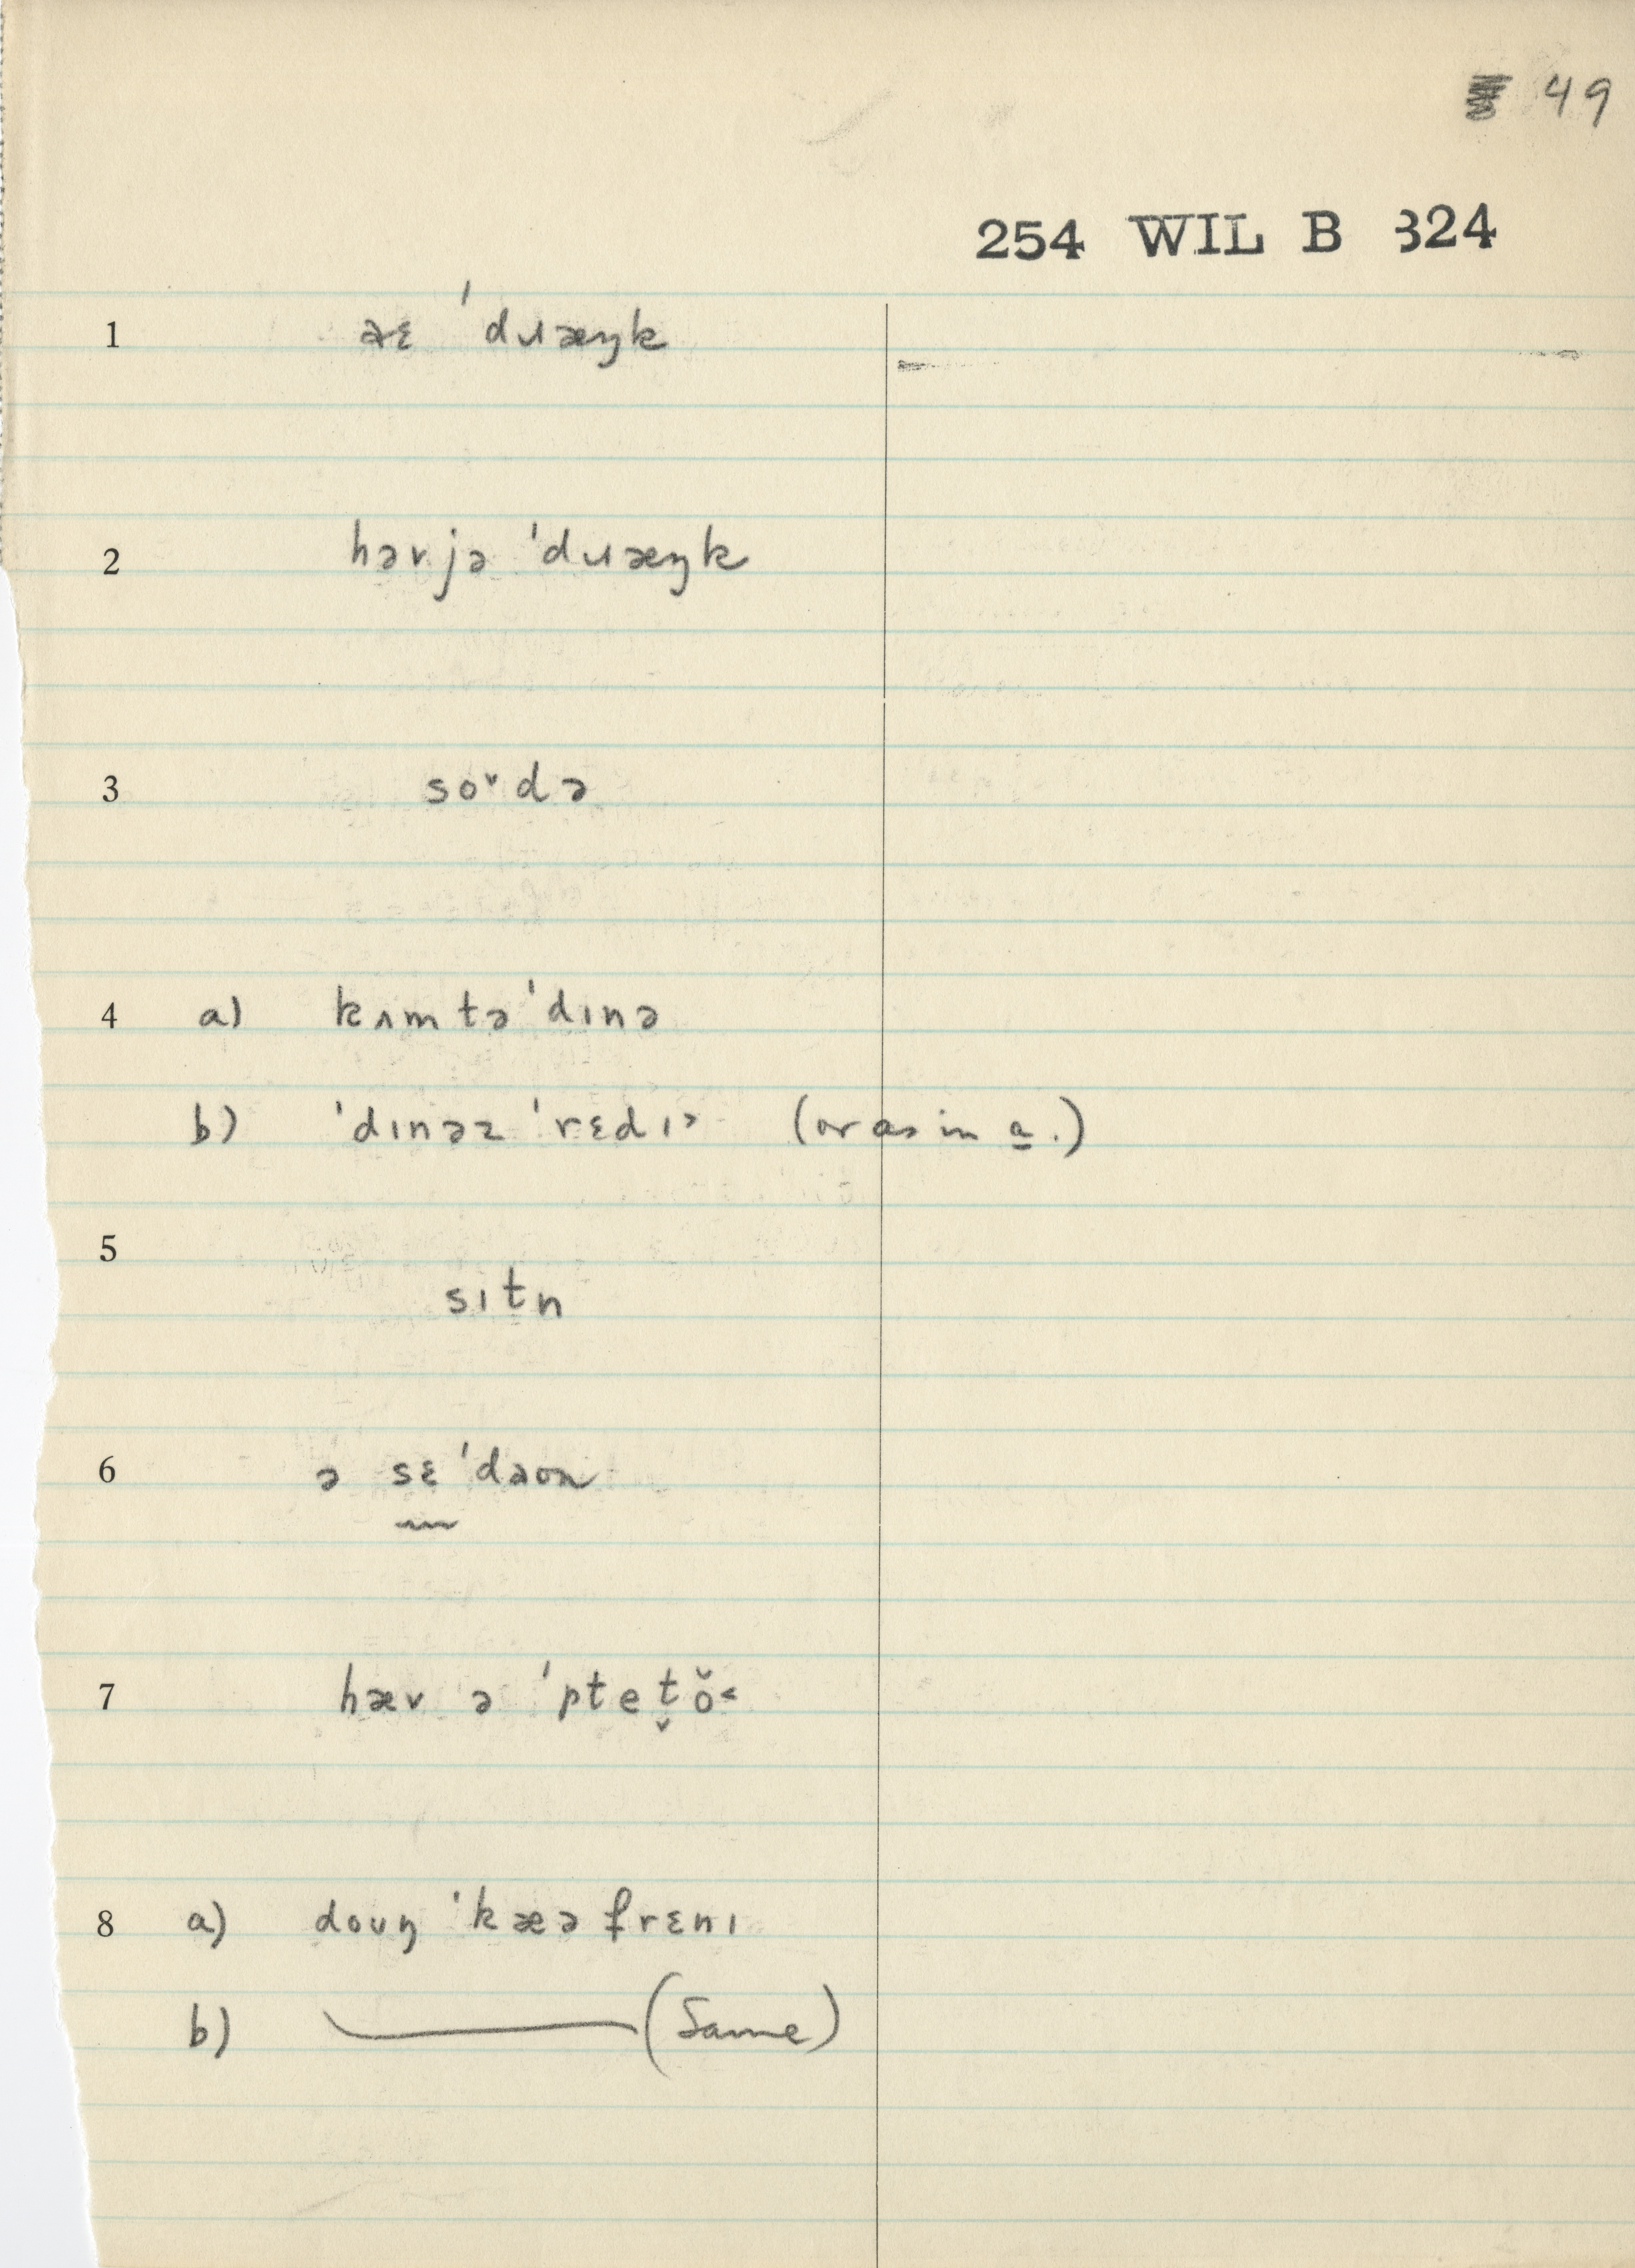 49
254 WIL B 324
1 əɛ ˈdɹæŋk
2 həvjə ˈdɹæŋk
3 soˇdə
4 a) kʌmtəˈdɪnə
b) ˈdɪnəz ˈrɛdɪᵊ (or as in a.)
5
sɪtn
6 ə sɛˈdaʊn
7 hæv ə ˈpteṱŏ˂
8 a) doʊŋ ˈkæəfrɛnɪ
b) (Same)